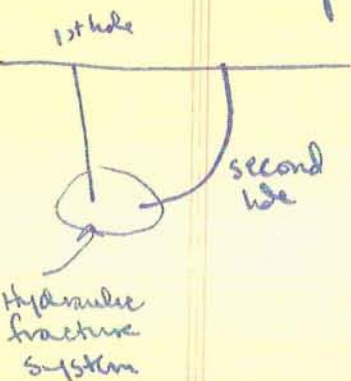 1st hole
second
hole
Hydraulic
fracture
system